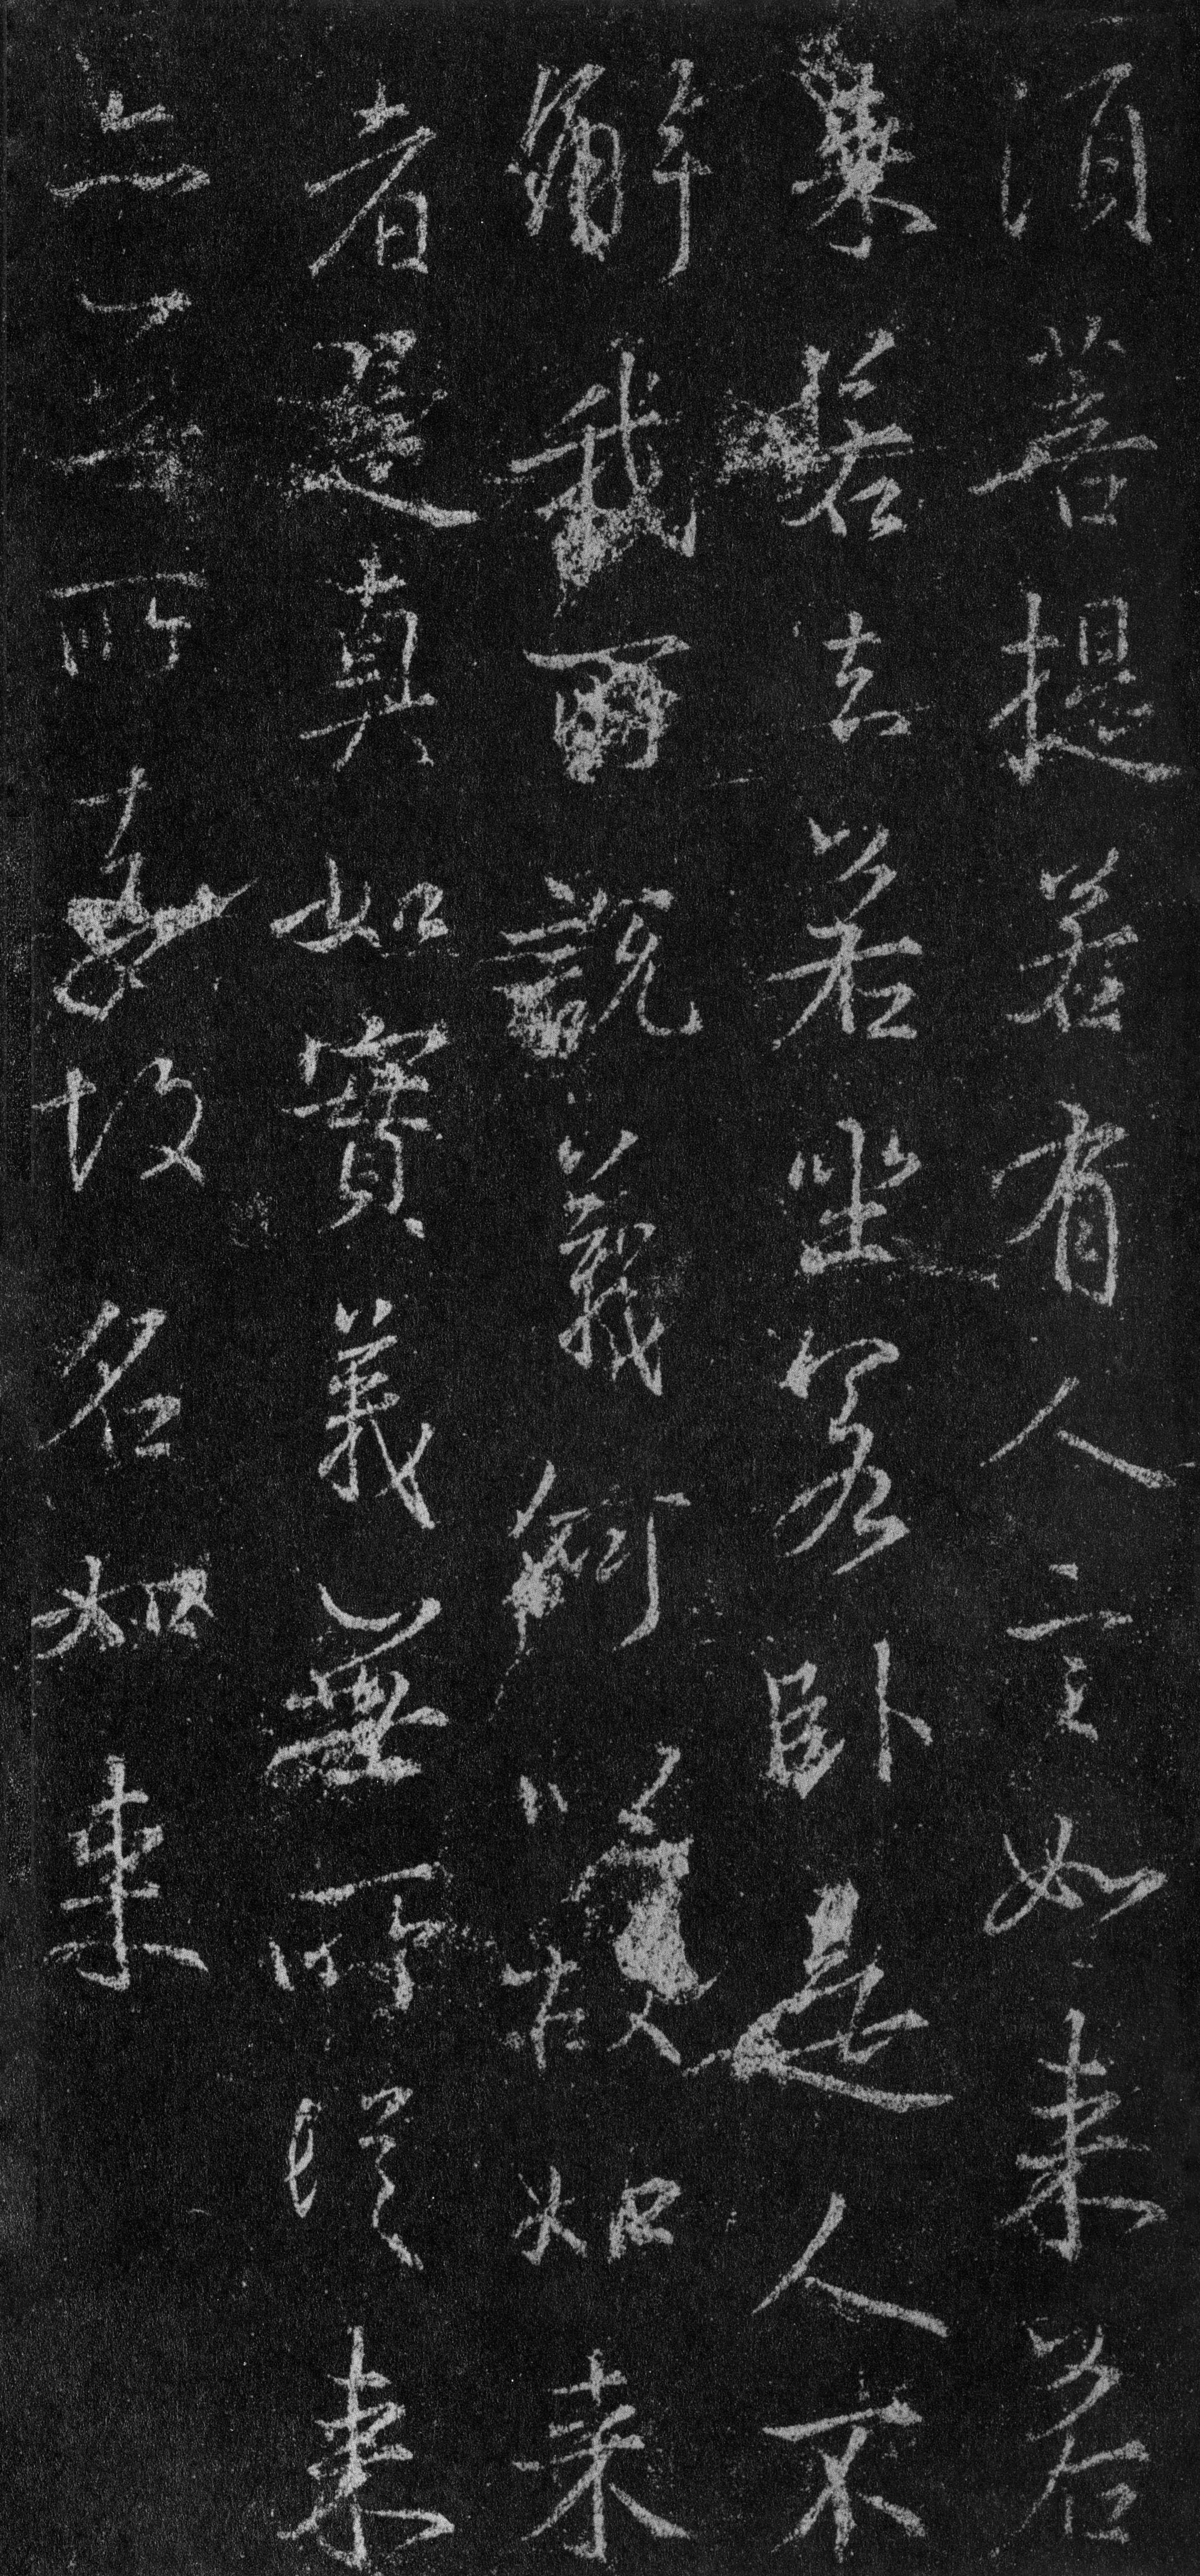 須菩提若有人言如来若
來若去若坐若卧是人不
解我所說義何以故如来
者是真如實義無所從來
亦無所去故名如來